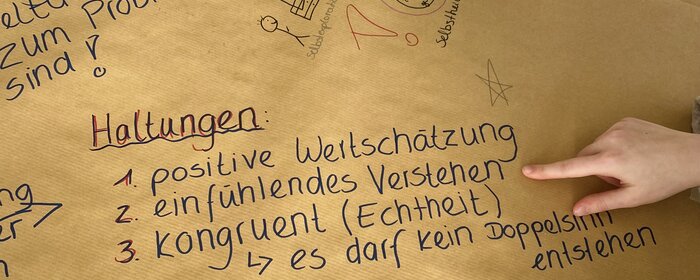 zum
sind!
Selbstexploration
Haltungen:
1. positive Wertschätzung
2. einfühlendes Verstehen
3. kongruent (Echtheit)
↳ es darf kein Doppelsinn
entstehen